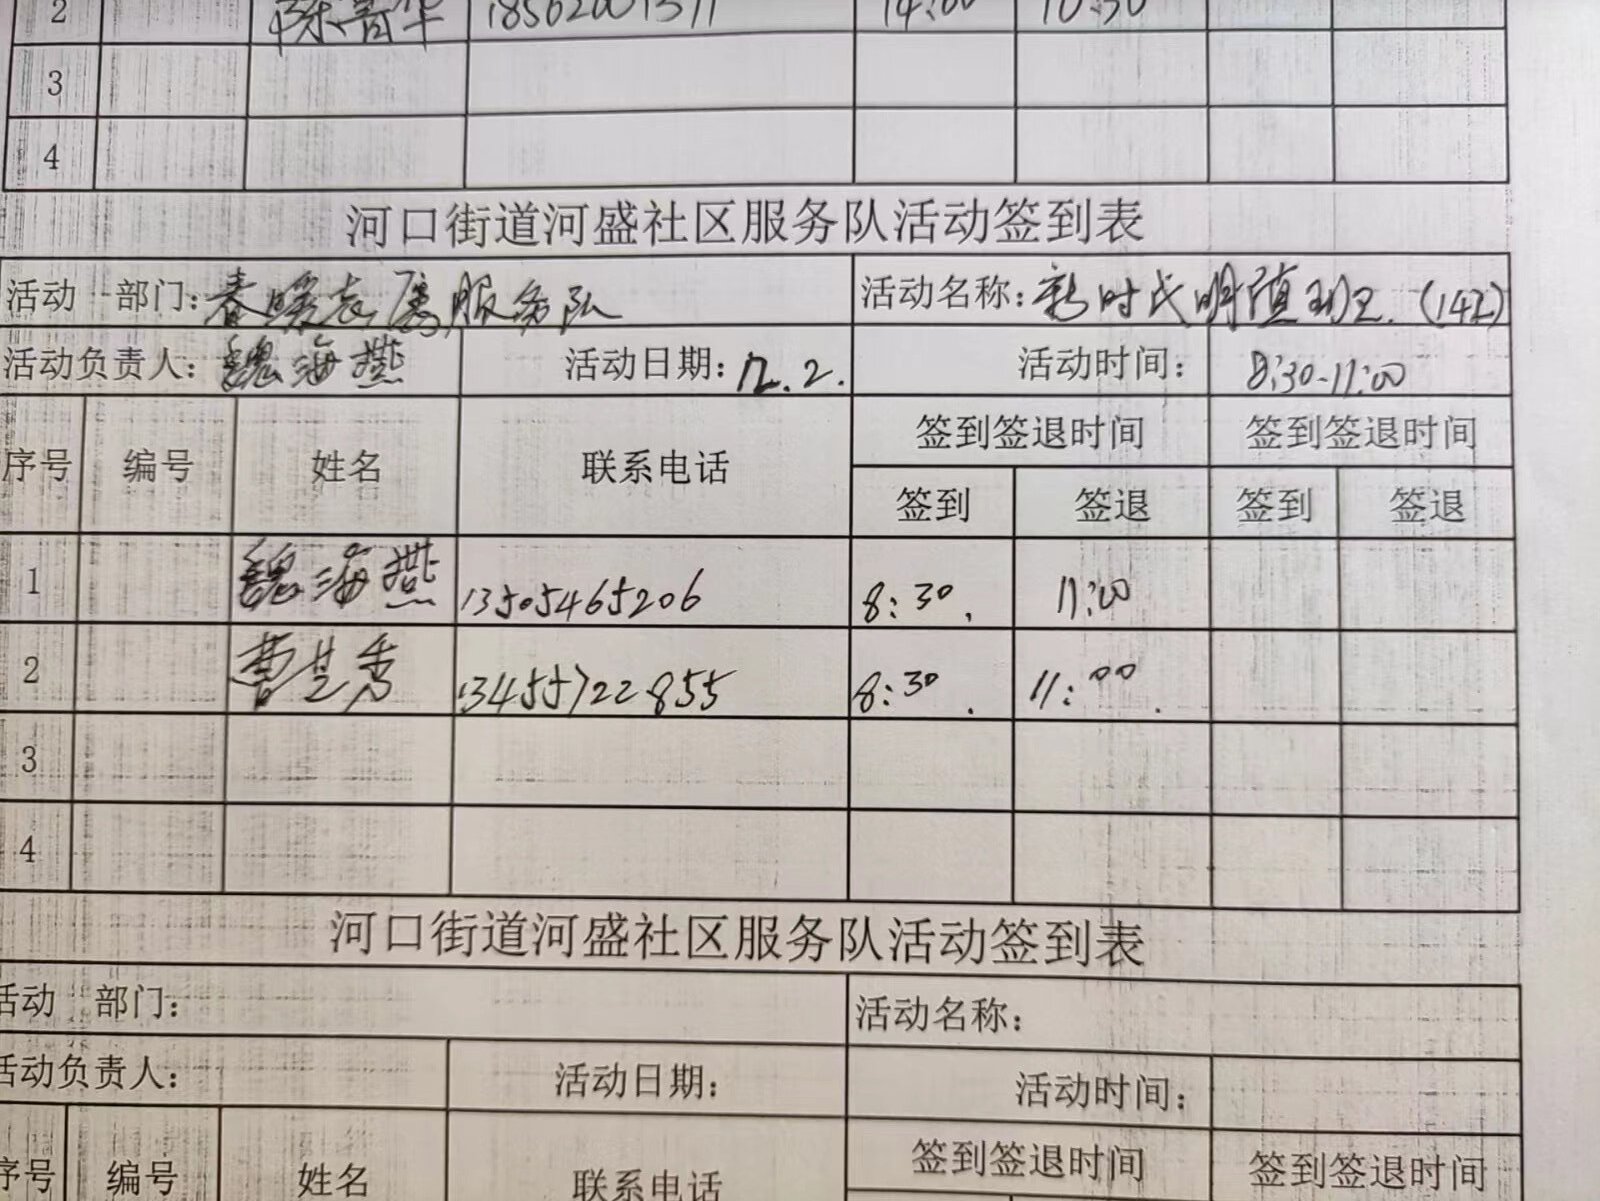 2 14:00
3
4
河口街道河盛社区服务队活动签到表
活动 部门: 春暖志愿服务队 活动名称: 新时代明值班 (142)
活动负责人: 魏海燕 活动日期: 12.2. 活动时间: 8:30-11:00
序号 编号 姓名 联系电话 签到签退时间 签到签退时间
签到 签退 签到 签退
1 魏海燕 13505465206 8:30. 11:00
2 曹芝秀 13455722855 8:30. 11:00.
3
4
河口街道河盛社区服务队活动签到表
活动 部门: 活动名称:
活动负责人: 活动日期: 活动时间:
序号 编号 姓名 联系电话 签到签退时间 签到签退时间